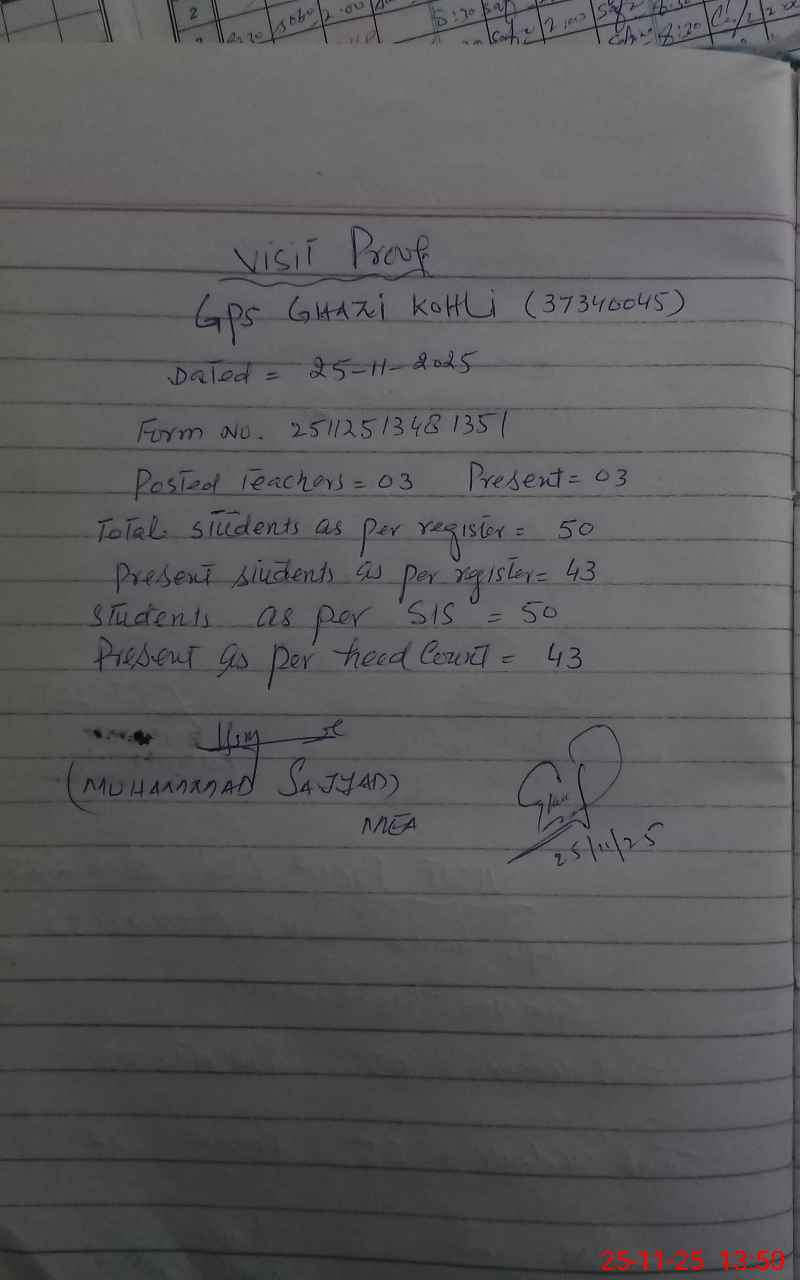 Visit Proof
GPS GHAZI KOHLI (37340045)
Dated = 25-11-2025
Form No. 25112513481351
Posted Teachers = 03 Present = 03
Total students as per register = 50
Present students as per register = 43
Students as per SIS = 50
Present as per head Count = 43
(MUHAMMAD SAJJAD)
MEA
25/11/25
25-11-25 13:50